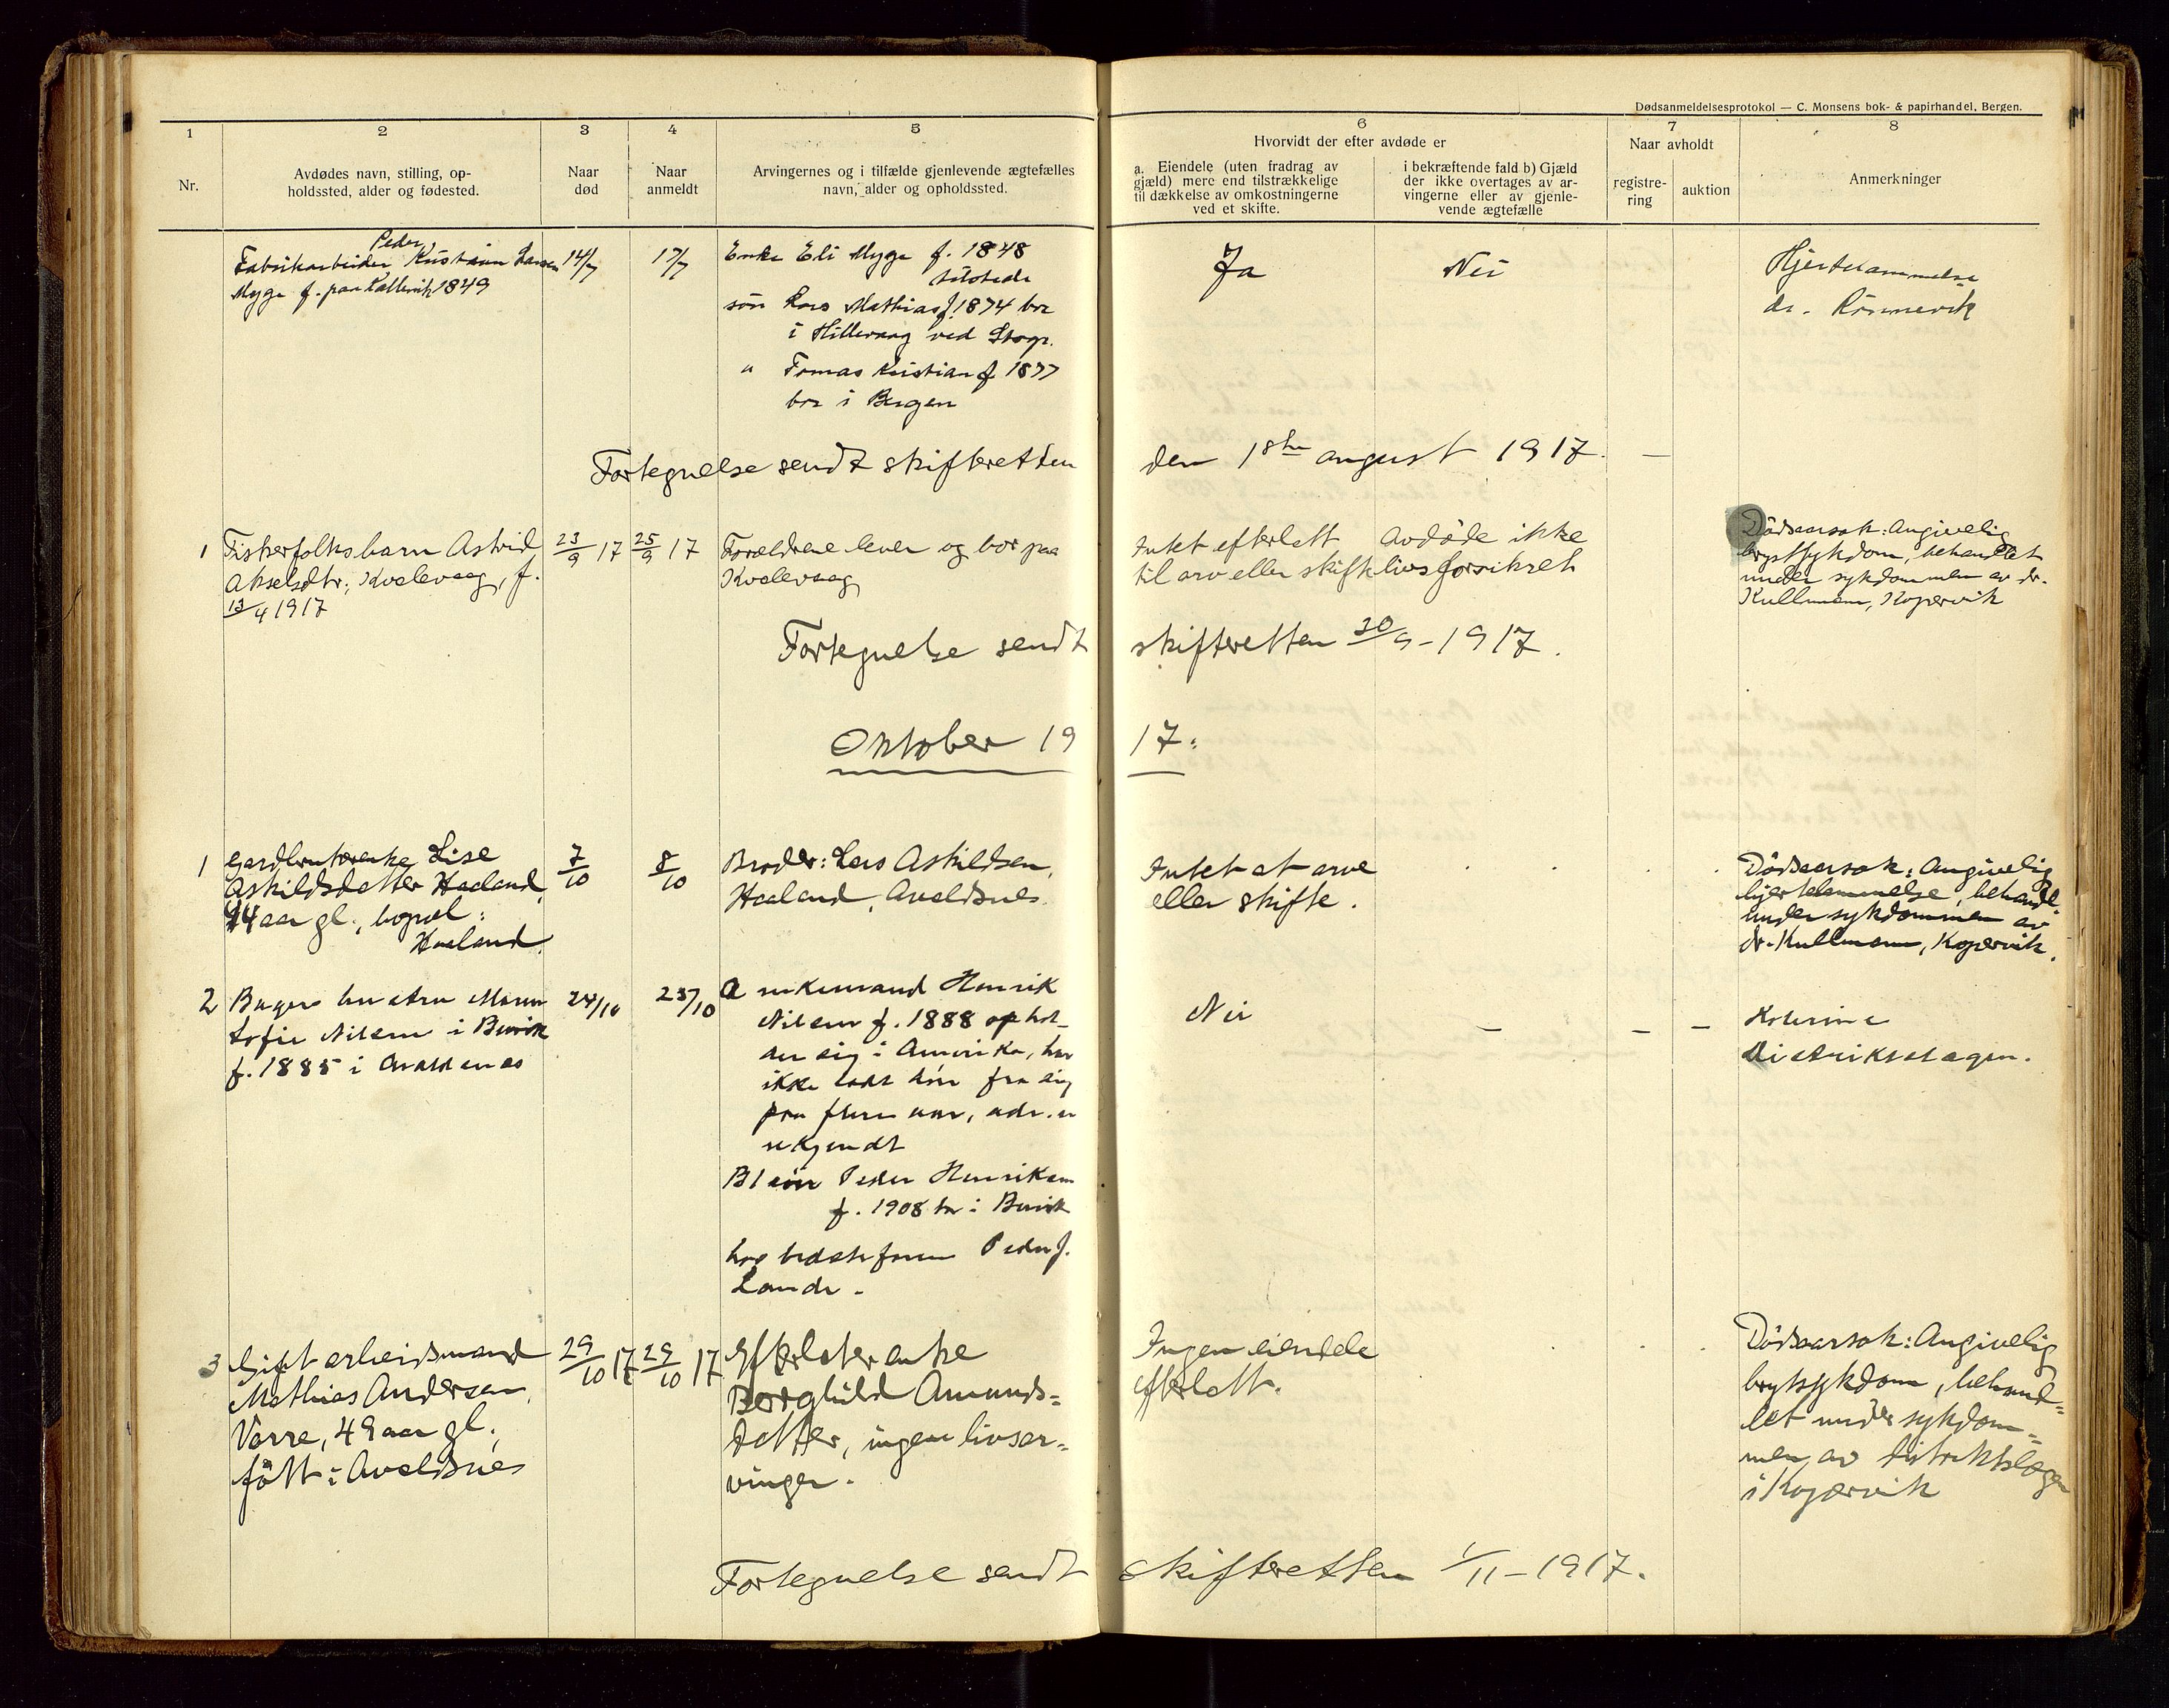 Dødsanmeldelsesprotokol — C. Monsens bok- & papirhandel, Bergen.
1
2
3
4
5
6
7
8
Nr.
Avdødes navn, stilling, op-
holdssted, alder og fødested.
Naar
død
Naar
anmeldt
Arvingernes og i tilfælde gjenlevende ægtefælles
navn, alder og opholdssted.
Hvorvidt der efter avdøde er
a. Eiendele (uten fradrag av
gjæld) mere end tilstrækkelige
til dækkelse av omkostningerne
ved et skifte.
i bekræftende fald b) Gjæld
der ikke overtages av ar-
vingerne eller av gjenle-
vende ægtefælle
Naar avholdt
registre-
ring
auktion
Anmerkninger
Peder
Fabrikarbeider Kristian Larsen
Myge f. paa 1849
14/7
17/7
Enke Eli Myge f. 1848
tilstede
søn Lars Mathias f. 1874 bor
i Hillevaag ved Stvgr.
" Tomas Kristian f 1877
bor i Bergen
Ja
Nei
Hjertelammelse
dr. Rønnevik
Fortegnelse sendt skifteretten
den 1ste august 1917. —
1
Fiskerfolks barn Astrid
Akselsdtr, Kvalevaag, f.
13/4 1917
23/9 17
25/9 17
Forældrene lever og bor paa
Kvalevaag
Intet efterlatt
til arv eller skifte
Avdøde ikke
livsforsikret
Dødsaarsak: Angivelig
brystsykdom, behandlet
under sykdommen av dr.
Kullmann, Kopervik
Fortegnelse sendt
skifteretten 30/9 - 1917.
Oktober 19
17.
1
Gardbrukerenke Lise
Askildsdatter Haaland,
94 aar gl., bopæl:
Haaland.
7/10
8/10
Broder: Lars Askildsen,
Haaland, Avaldsnes.
Intet at arve
eller skifte.
Dødsaarsak: Angivelig
hjertelammelse, behandl.
under sykdommen av
dr. Kullmann, Kopervik.
2
Bagers hustru Maren
Sofie Nilsen i Bwik
f. 1885 i Avaldsnes
24/10
25/10
A enkemand Henrik
Nilsen f. 1888 ophol-
der sig i Amerika, har
ikke ladt høre fra sig
paa flere aar, adr. u
nekjendt
B 1 søn Peder Henriksen
f. 1908 bor i
hos bedstefaren Peder J.
Lande.
Nei
—
— —
distriktslægen.
3
Gift arbeidsmand
Mathias Andersen,
Vorre, 49 aar gl.,
født i Avaldsnes
29/10 17
29/10 17
Efterlater enke
Borghild Amunds-
datter, ingen livsar-
vinger.
Ingen eiendele
efterlatt.
Dødsaarsak: Angivelig
brystsykdom, behand-
let under sykdom-
men av distriktslægen
i Kopervik
Fortegnelse sendt
skifteretten 1/11 - 1917.